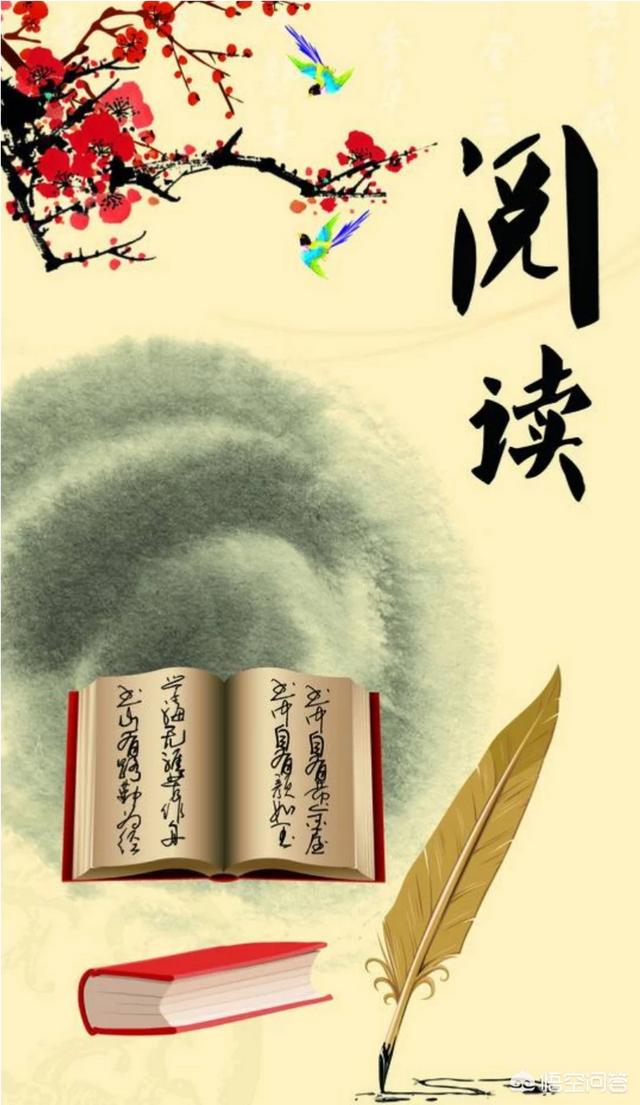 阅读
书中自有黄金屋
书中自有颜如玉
学海无涯苦作舟
书山有路勤为径
悟空问答